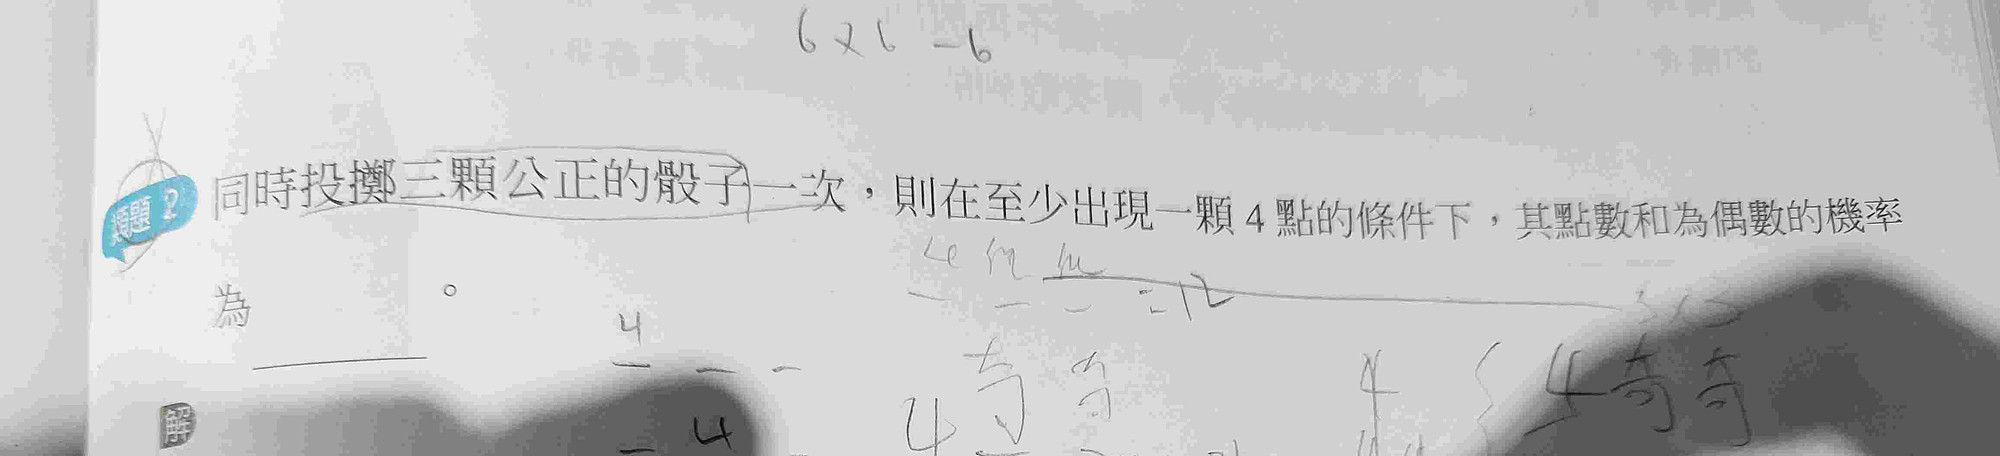 6×6-6
類題2 同時投擲三顆公正的骰子一次，則在至少出現一顆4點的條件下，其點數和為偶數的機率
為 。
4
=12
奇奇
4
4
4奇奇
解
4